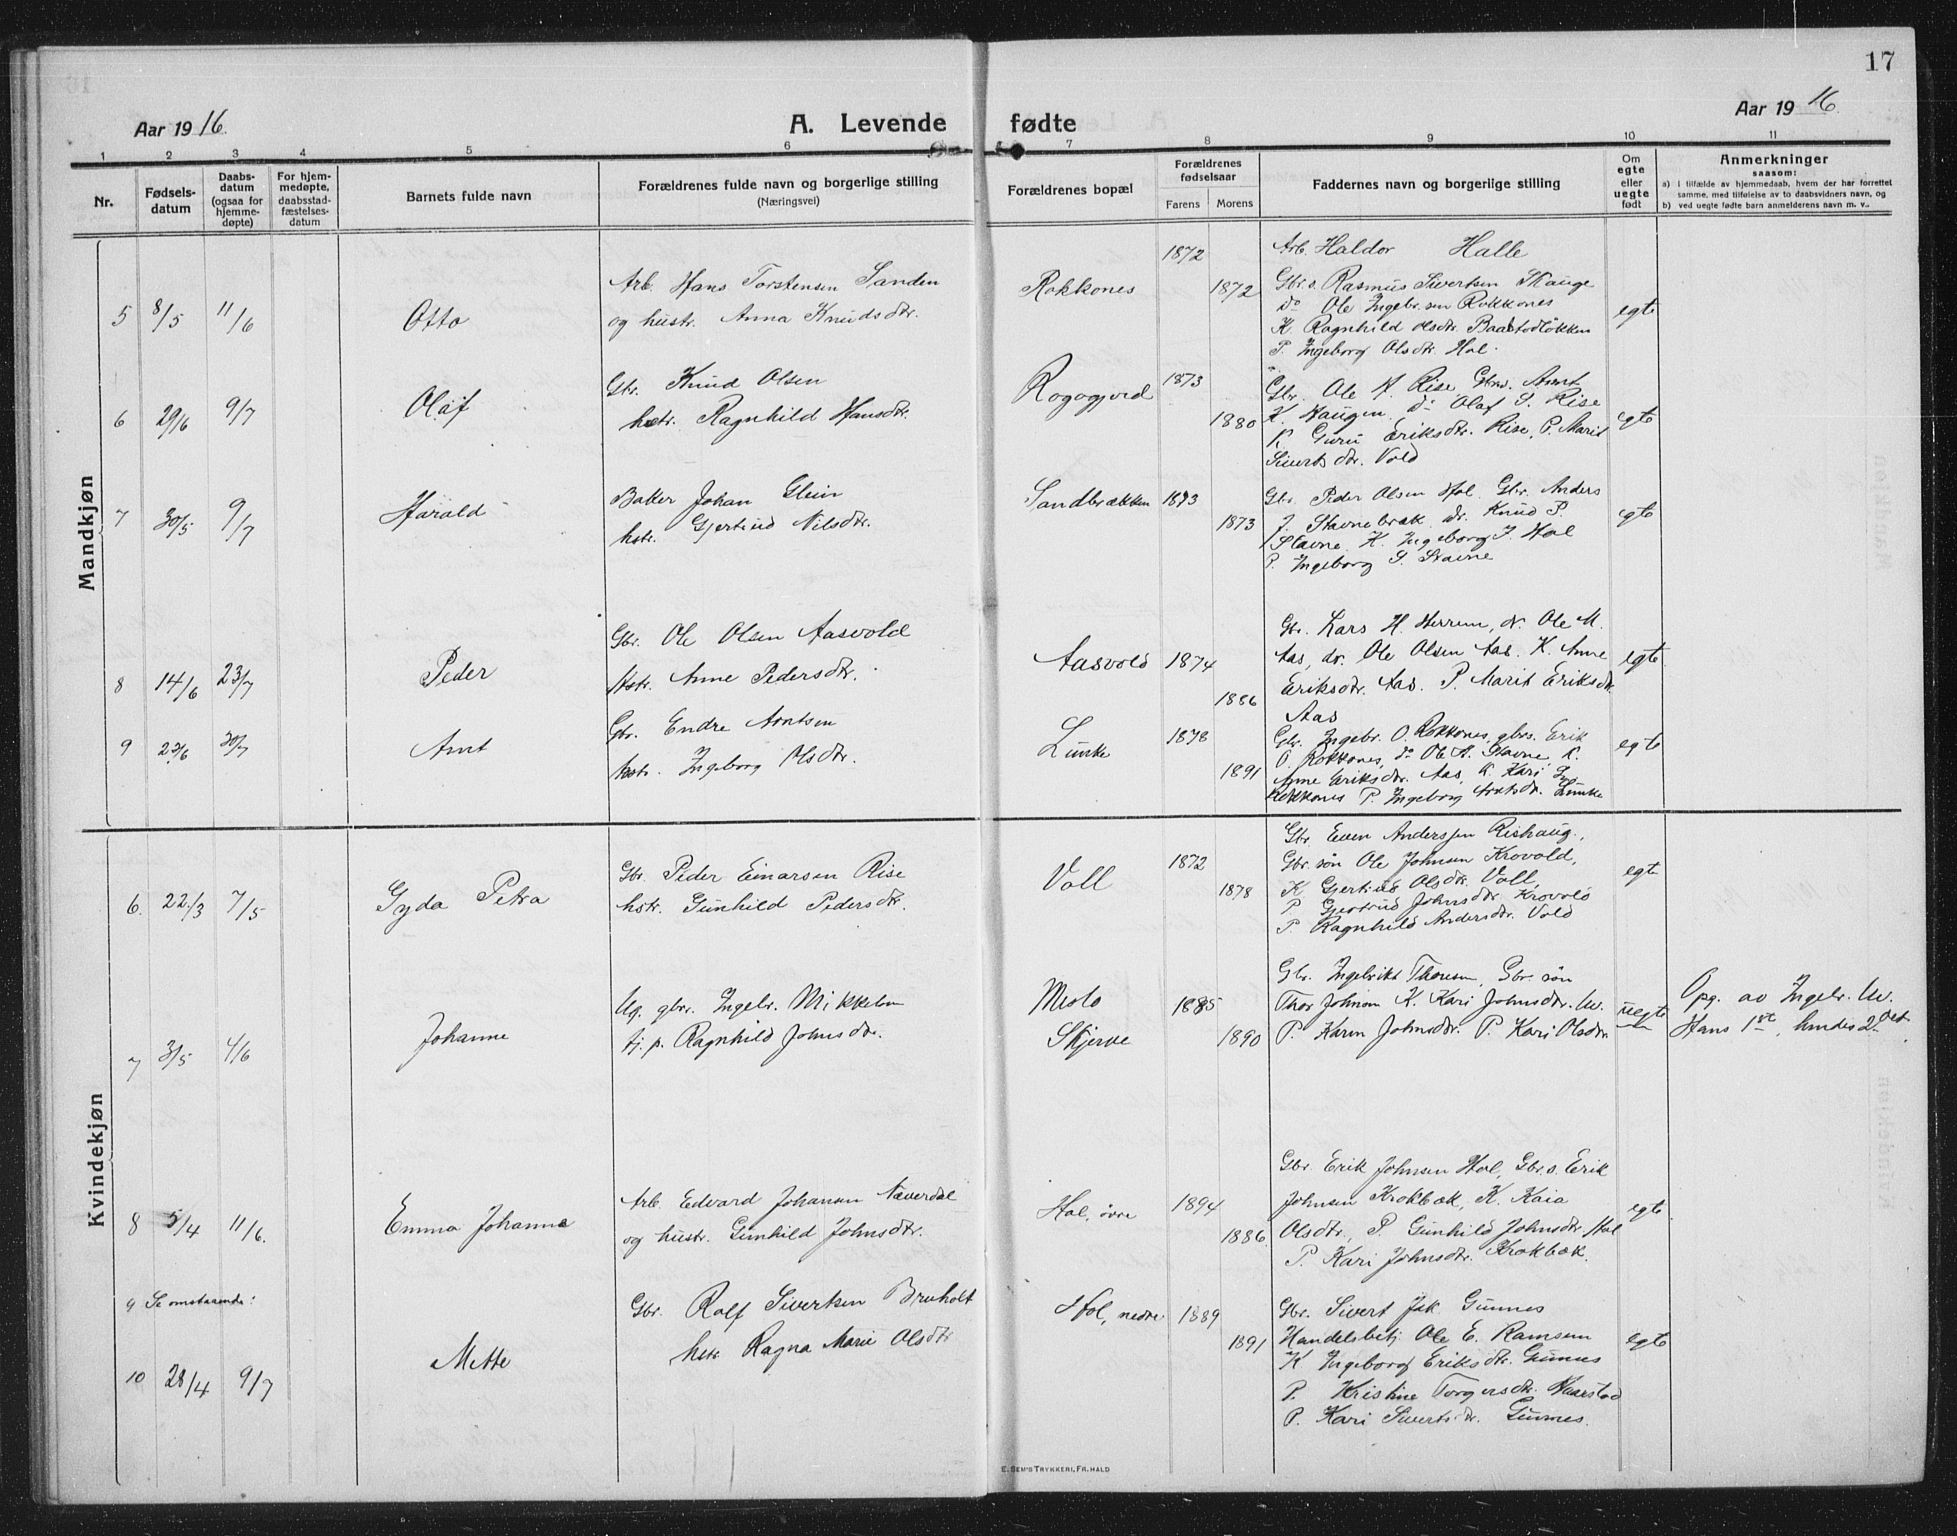 17
Aar 1916.
A. Levende fødte
Aar 1916.
1 2 3 4 5 6 7 8 9 10 11
Nr.
Fødsels-
datum
Daabs-
datum
(ogsaa for
hjemme-
døpte)
For hjem-
medøpte,
daabsstad-
fæstelses-
datum
Barnets fulde navn
Forældrenes fulde navn og borgerlige stilling
(Næringsvei)
Forældrenes bopæl
Forældrenes
fødselsaar
Farens Morens
Faddernes navn og borgerlige stilling
Om
egte
eller
uegte
født
Anmerkninger
saasom:
a) i tilfælde av hjemmedaab, hvem der har forrettet
samme, med tilføielse av to daabsvidners navn, og
b) ved uegte fødte barn anmelderens navn m. v..
Mandkjøn
5 8/5 11/6 Otto
Arb. Hans Torstensen Sanden
og hustr. Anna Knudsdtr.
Rokkones 1872 1872
Arb. Haldor Halle
Gbr.s. Rasmus Sivertsen Skauge
do Ole Ingebr.sen Rokkones
K. Ragnhild Olsdtr. Baardstadløkken
P. Ingeborg Olsdtr. Hol.
egte
6 29/6 9/7 Olaf
Gbr. Knud Olsen
hstr. Ragnhild Hansdtr.
Rogogjerd 1873 1880
Gbr. Ole A. Rise, Gbrs. Arnt
K. Haugen, do Olaf S. Rise
K Guru Eriksdtr. Rise, P. Marit
Sivertsdtr. Vold
egte
7 30/5 9/7 Harald
Baker Johan Glein
hstr. Gjertrud Nilsdtr.
Sandbrækken 1873 1873
Gbr. Peder Olsen Hol, Gbr. Anders
J. Stavnebræk, do. Knud P.
Stavne. K. Ingeborg J. Hol
P. Ingeborg S. Stavne
egte
8 14/6 23/7 Peder
Gbr. Ole Olsen Aasvold
Hstr. Anne Pedersdtr.
Aasvold 1874 1886
Gbr. Lars H. Herrem, do. Ole M.
Aas, do. Ole Olsen Aas. K. Anne
Eriksdtr. Aas. P. Marit Eriksdtr.
Aas
egte
9 23/6 30/7 Arnt
Gbr. Endre Arntsen
hstr. Ingeborg Olsdtr.
Lunke 1878 1891
Gbr. Ingebr. O. Rokkones, gbrs. Erik
O. Rokkones, do Ole A. Stavne, K.
Anne Eriksdtr. Aas, K. Kari
Rokkones P. Ingeborg Arntsdtr. Lunke
egte
Kvindekjøn
6. 22/3 7/5 Gyda Petra
Gbr. Peder Einarsen Rise
hstr. Gunhild Pedersdtr.
Voll 1872 1878
Gbr. Even Anderssen Rishaug,
Gbr.søn Ole Johnsen Krovold,
K Gjertrud Olsdtr. Voll
P Gjertrud Johnsdtr. Krovold
P. Ragnhild Andersdtr. Vold
egte
7 3/5 4/6 Johanne
Ug. gbr. Ingebr. Mikkelsen
tj. p. Ragnhild Johnsdtr.
Meslo
Skjerve 1885 1890
Gbr. Ingebrikt Thoresen, Gbr. søn
Thor Johnsen K. Kari Johnsdtr. Uv.
P. Karen Johnsdtr. P. Kari Olsdtr.
uegte
Opg. av Ingebr. Uv.
Hans 1ste, hendes 2det
8 5/4 11/6. Emma Johanne
Arb. Edvard Johansen Næverdal
og hustr. Gunhild Johnsdtr.
Hol, øvre 1894 1886.
Gbr. Erik Johnsen Hol, Gbr.s. Erik
Johnsen Krokbæk, K. Kaia
Olsdtr., P. Gunhild Johnsdtr. Hol
P. Kari Johnsdtr. Krokbæk.
egte
9 Se omstaaende:
10 28/4 9/7 Mette
Gbr. Rolf Sivertsen Bruholt
hstr. Ragna Marie Olsdtr
Hol, nedre 1889 1891
Gbr. Sivert Jak. Gunnes
Handelsbetj. Ole E. Ramsem
K Ingeborg Eriksdtr. Gunnes
P. Kristine Torgersdtr. Haarstad
P. Kari Sivertsdtr. Gunnes.
egte
E. SEM'S TRYKKERI, FR. HALD